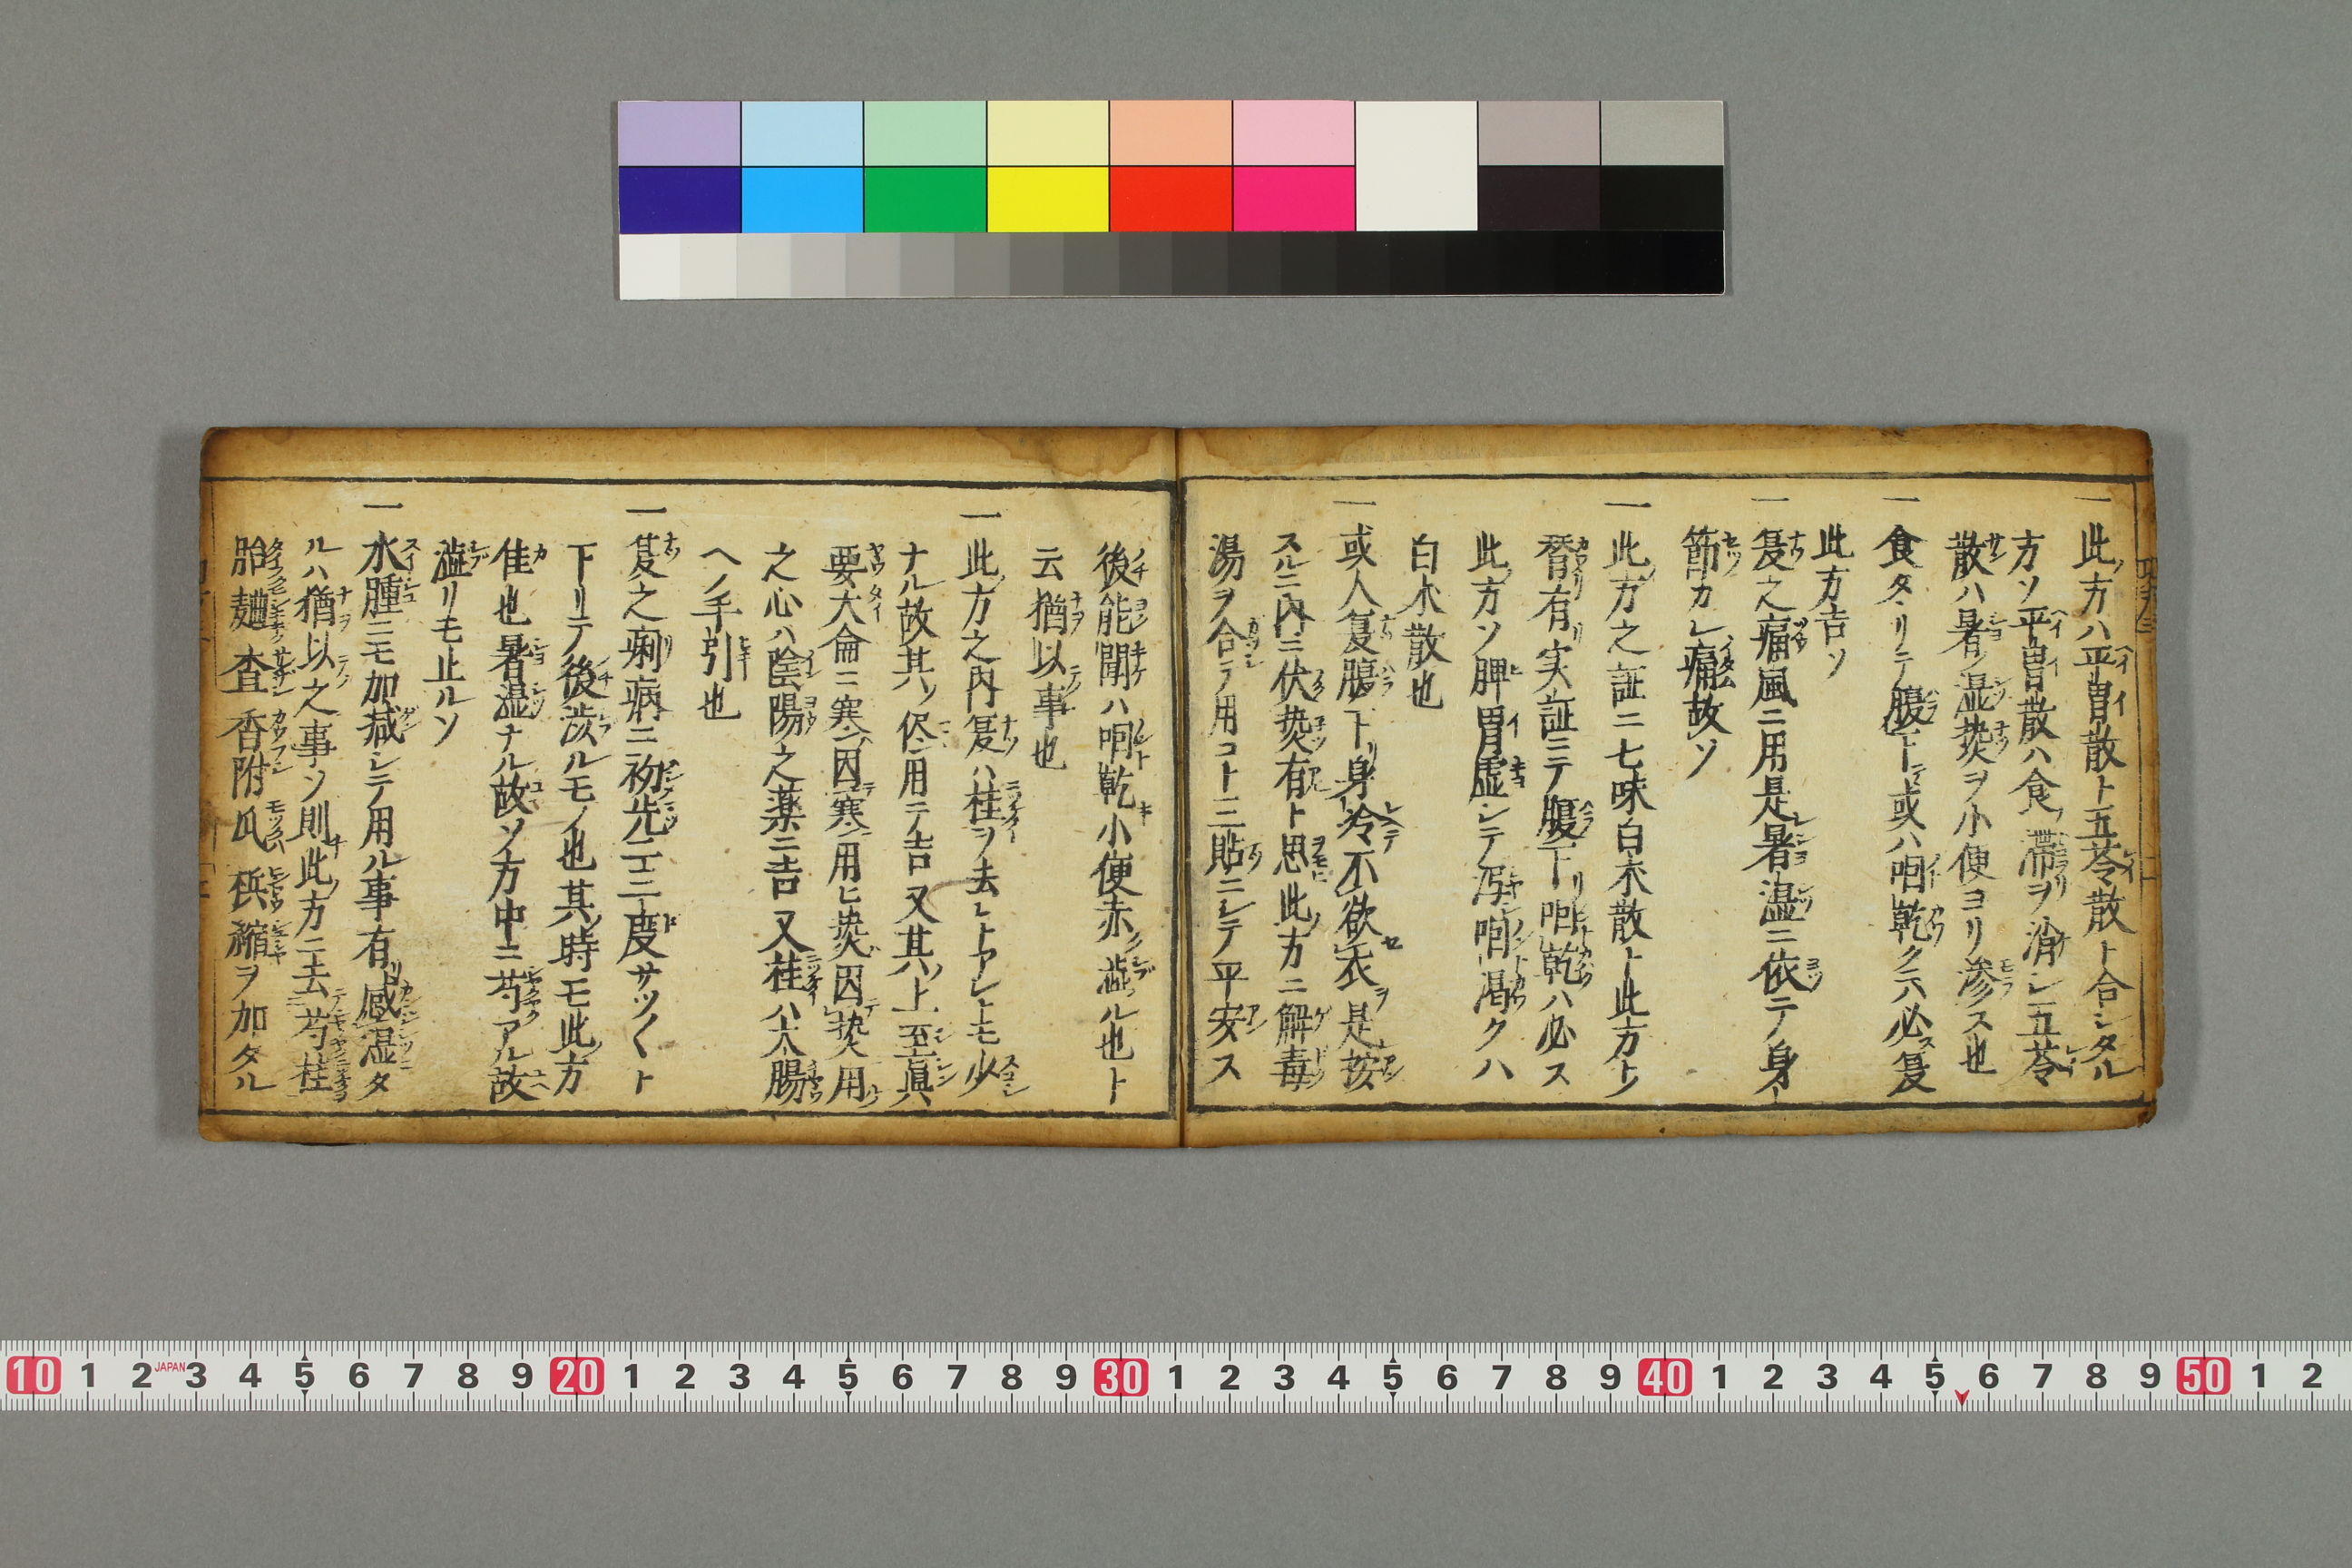 一此方ハ平胃散ト五苓散ト合シタル
方ソ平胃散ハ食滞ヲ消シ五苓
散ハ暑ノ湿熱ヲ小便ヨリ滲ス也
一食タヽリテ腹下或ハ咽乾ク六必夏
此方吉ソ
一夏之痛風ニ用是暑湿ニ依テ身ノ
節カレ痛故ソ
一此方之証ニ七味白朮散ト此方トノ
替有実証ニテ腹下リ咽乾ハ必ス
此方ソ脾胃虚シテ瀉咽渇クハ
白朮散也
一或人夏腹下身冷不欲衣是按
スルニ内ニ伏熱有ト思此方ニ解毒
湯ヲ合テ用コト三貼ニシテ平安ス
後能聞ハ咽乾小便赤澁ル也ト
云猶以事也
一此方之内夏ハ桂ヲ去レトアレトモ少
ナル故其ノ侭用テ吉又其ノ上至眞
要大侖ニ寒因寒用ヒ熱因熱用
之心ハ陰陽之薬ニ吉又桂ハ大腸
ヘノ手引也
一夏之痢病ニ初先一二度サツクト
下リテ後渋ルモノ也其時モ此方
佳也暑湿ナル故ソ方中ニ芍アル故
澁リモ止ルソ
一水腫ニモ加减シテ用ル事有感湿タ
ルハ猶以之事ソ則此方ニ去芍桂
胎麯査香附瓜梹縮ヲ加タル
10 1 2 JAPAN 3 4 5 6 7 8 9 20 1 2 3 4 5 6 7 8 9 30 1 2 3 4 5 6 7 8 9 40 1 2 3 4 5 6 7 8 9 50 1 2